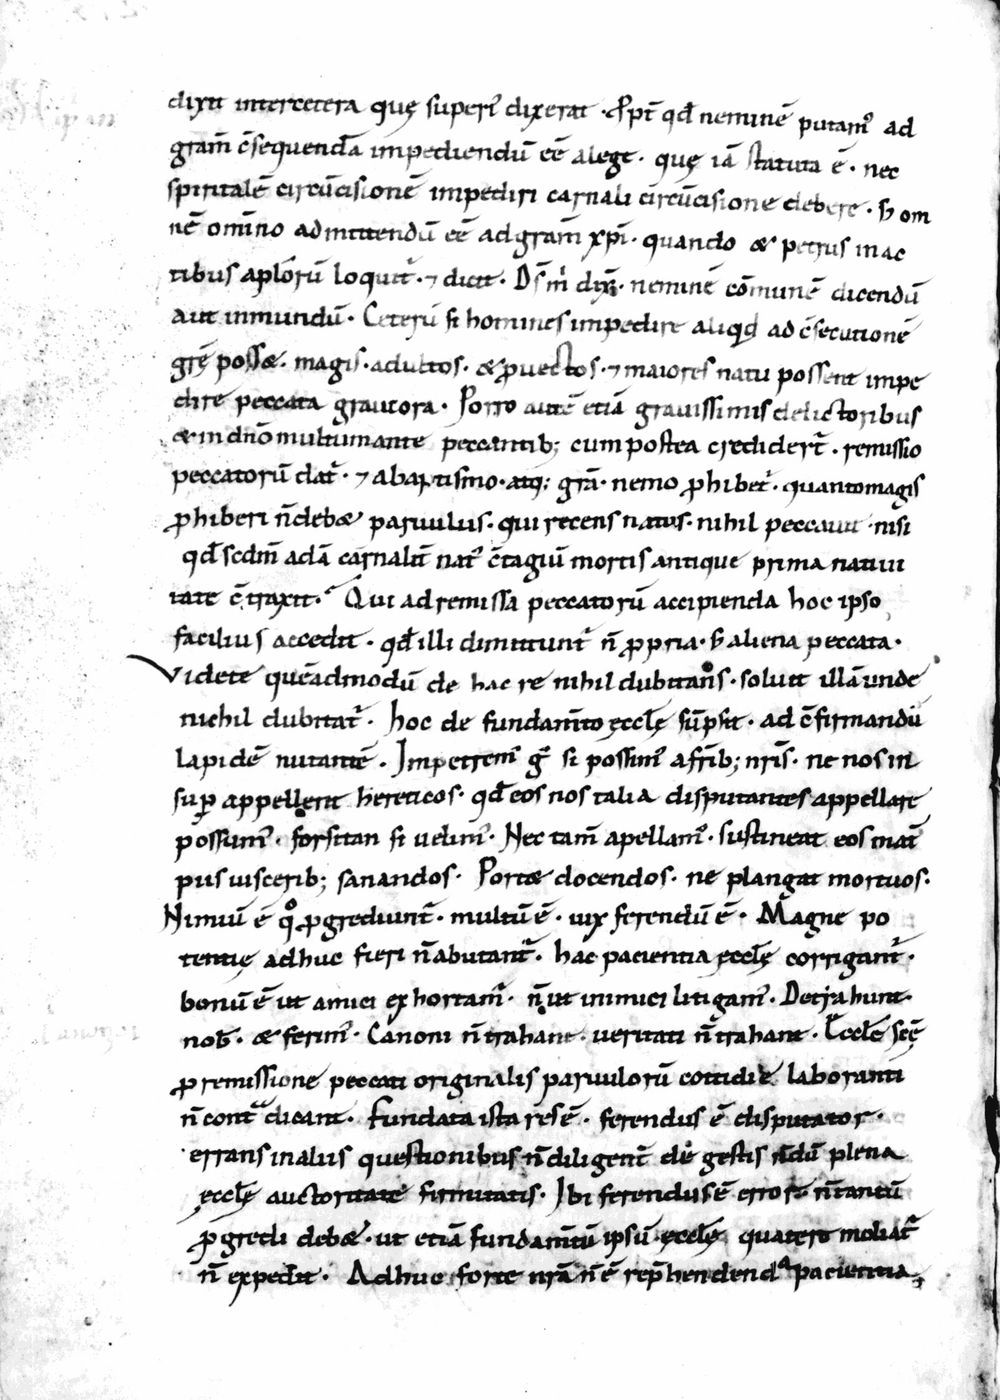 dixit intercetera quę superi᾽ dixerat · Ppt̄ qd̄ neminē putam᾽ ad
gram̄ c̄sequenda impediendū eē a lege · quę iā statuta ē · nec
spiritalē circūcisionē impediri carnali circūcisione debere · s; om
nē omīno admittendū eē adgram̄ xp̄i · quando & petrus in ac
tibus apl̄orū loquit᾽ · ⁊ dicit · D̄s m̄ dix̄ · neminē cōmunē dicendū
aut inmundū · Ceterū si homines impedire aliqd ad c̄secutionē
grę̄ poss& · magis · adultos · & ꝓuectos · ⁊ maiores natu possent impe
dire peccata grauiora · Porro autē etiā grauissimis delictoribus
& in dn̄o multum ante peccantib; cum postea credider̄t · remissio
peccatorū dat᾽ · ⁊ abaptismo · atq; grā · nemo ꝓhibet᾽ · quantomagis
ꝓhiberi n̄ deb& paruulus · qui recens natus · nihil peccauit · nisi
qd̄ scdm̄ adā carnalit̄ nat᾽ c̄tagiū mortis antique prima natiui
tate c̄traxit · Qui ad remissa peccatorū accipienda hoc ipso
facilius accedit · qd̄ illi dimittunt᾽ n̄ ꝓpria · s; aliena peccata ·
Videte quēadmodū de hac re nihil dubitans · soluit illā unde
nichil dubitat᾽ · hoc de fundam̄to ęccl̄ę sūpsit · ad c̄firmandū
lapidē nutantē · Impetrem᾽ g̊ si possim᾽ a fr̄ib; nr̄is · ne nos in
sup̱ appellent hereticos · qd̄ eos nos talia disputantes appellare
possum᾽ · forsitan si uelim᾽ · Nec tam̄ apellam᾽ · sustineat eos mat̄
piis uiscerib; sanandos · Port& docendos · ne plangat mortuos ·
Nimiū ē qͦ ꝓgrediunt᾽ · multū ē · uix ferendū ē · Magne po
tentię adhuc fieri n̄ abutant᾽ · hac pacientia ęccl̄ę corrigant᾽ ·
bonū ē ut amici exhortam᾽ · n̄ ut inimici litigam᾽ · Detrahunt ·
nob̄ · & ferim᾽ · Canoni n̄ trahant · ueritati n̄ trahant · Ęccl̄ę sc̄ę
ꝓ remissione peccati originalis paruulorū cottidie laboranti
n̄ cont̄ dicant · Fundata ista res ē · ferendus ē disputator ·
errans in aliis questionibus n̄ diligent̄ digestis n̄dū plena
ęccl̄ę auctoritate firmatis · Ibi ferendus ē error · n̄ tantū
ꝓgredi deb& · ut etiā fundam̄tū ipsū ęccl̄ę quatere moliat᾽
n̄ expedit · Adhuc forte nr̄a n̄ ē rep̄hendenda pacientia